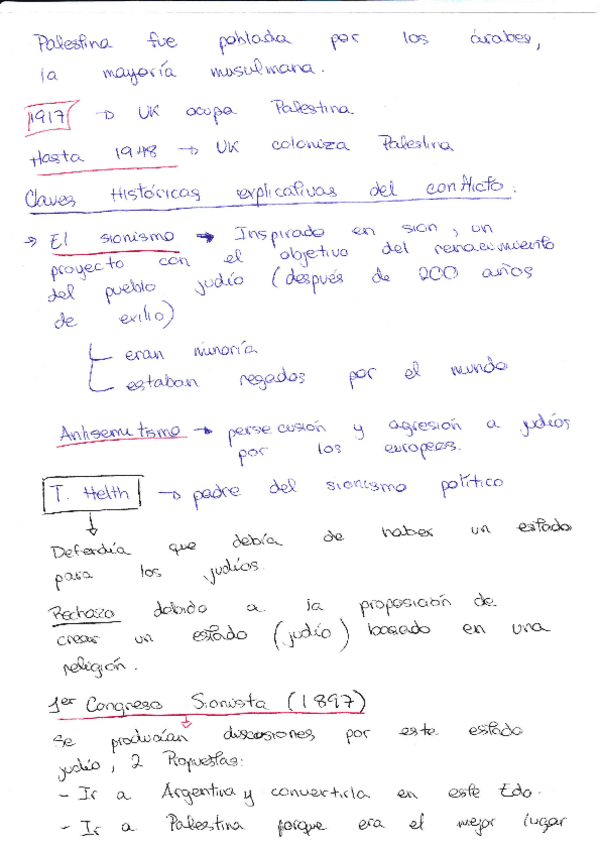 Palestina fue poblada por los árabes,
la mayoría musulmana.
1917 → UK ocupa Palestina
Hasta 1948 → UK coloniza Palestina
Claves Históricas explicativas del conflicto:
→ El sionismo → Inspirado en sion, un
proyecto con el objetivo del renacimiento
del pueblo judío (después de 200 años
de exilio)
eran minoría
estaban regados por el mundo
Antisemitismo → persecusión y agresión a judíos
por los europeos.
T. Helth → padre del sionismo político
Defendía que debía de haber un estado
para los judíos.
Rechazo debido a la proposición de
crear un estado (judío) basado en una
religión.
1er Congreso Sionista (1897)
Se producían discusiones por este estado
judío, 2 Propuestas:
- Ir a Argentina y convertirla en este Edo.
- Ir a Palestina porque era el mejor lugar